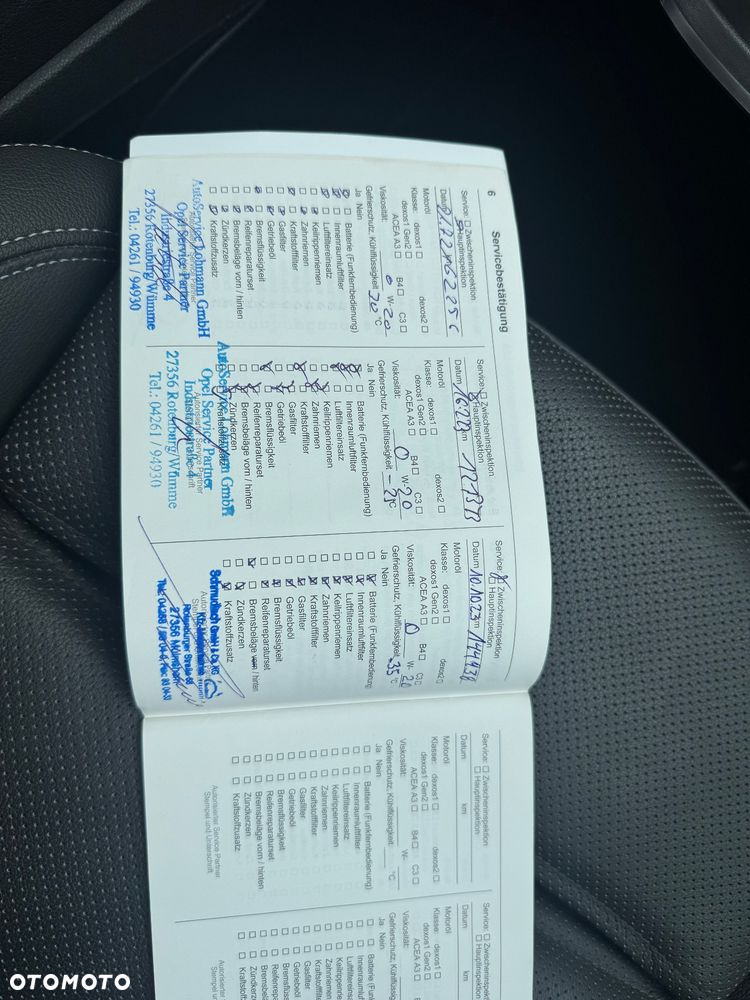 6
Servicebestätigung
Service: Zwischeninspektion
Hauptinspektion
Datum km
Motoröl
Klasse: dexos1 dexos2
dexos1 Gen2
ACEA A3 B4 C3
Viskosität: 0 W- 20
Gefrierschutz, Kühlflüssigkeit °C
Ja Nein
Batterie (Funkfernbedienung)
Innenraumluftfilter
Luftfiltereinsatz
Keilrippenriemen
Zahnriemen
Kraftstofffilter
Gasfilter
Getriebeöl
Bremsflüssigkeit
Reifenreparaturset
Bremsbeläge vorn / hinten
Zündkerzen
Kraftstoffzusatz
AutoService Lohmann GmbH
Opel Service Partner
Industriestraße 4
27356 Rotenburg/Wümme
Tel.: 04261 / 94930
Service: Zwischeninspektion
Hauptinspektion
Datum km
Motoröl
Klasse: dexos1 dexos2
dexos1 Gen2
ACEA A3 B4 C3
Viskosität: 0 W- 20
Gefrierschutz, Kühlflüssigkeit °C
Ja Nein
Batterie (Funkfernbedienung)
Innenraumluftfilter
Luftfiltereinsatz
Keilrippenriemen
Zahnriemen
Kraftstofffilter
Gasfilter
Getriebeöl
Bremsflüssigkeit
Reifenreparaturset
Bremsbeläge vorn / hinten
Zündkerzen
Kraftstoffzusatz
AutoService Lohmann GmbH
Opel Service Partner
Autorisierter Service Partner
Industriestraße 4
27356 Rotenburg/Wümme
Tel.: 04261 / 94930
Service: Zwischeninspektion
Hauptinspektion
Datum 10.10.23 km
Motoröl
Klasse: dexos1 dexos2
dexos1 Gen2
ACEA A3 B4 C3
Viskosität: 0 W- 20
Gefrierschutz, Kühlflüssigkeit -35 °C
Ja Nein
Batterie (Funkfernbedienung)
Innenraumluftfilter
Luftfiltereinsatz
Keilrippenriemen
Zahnriemen
Kraftstofffilter
Gasfilter
Getriebeöl
Bremsflüssigkeit
Reifenreparaturset
Bremsbeläge vorn / hinten
Zündkerzen
Kraftstoffzusatz
GmbH & Co. KG
Service: Zwischeninspektion
Hauptinspektion
Datum km
Motoröl
Klasse: dexos1 dexos2
dexos1 Gen2
ACEA A3 B4 C3
Viskosität: W-
Gefrierschutz, Kühlflüssigkeit °C
Ja Nein
Batterie (Funkfernbedienung)
Innenraumluftfilter
Luftfiltereinsatz
Keilrippenriemen
Zahnriemen
Kraftstofffilter
Gasfilter
Getriebeöl
Bremsflüssigkeit
Reifenreparaturset
Bremsbeläge vorn / hinten
Zündkerzen
Kraftstoffzusatz
Autorisierter Service Partner
Stempel und Unterschrift
Service: Zwischeninspektion
Hauptinspektion
Datum
Motoröl
Klasse: dexos1
dexos1 Gen2
ACEA A3
Viskosität:
Ja Nein
OTOMOTO